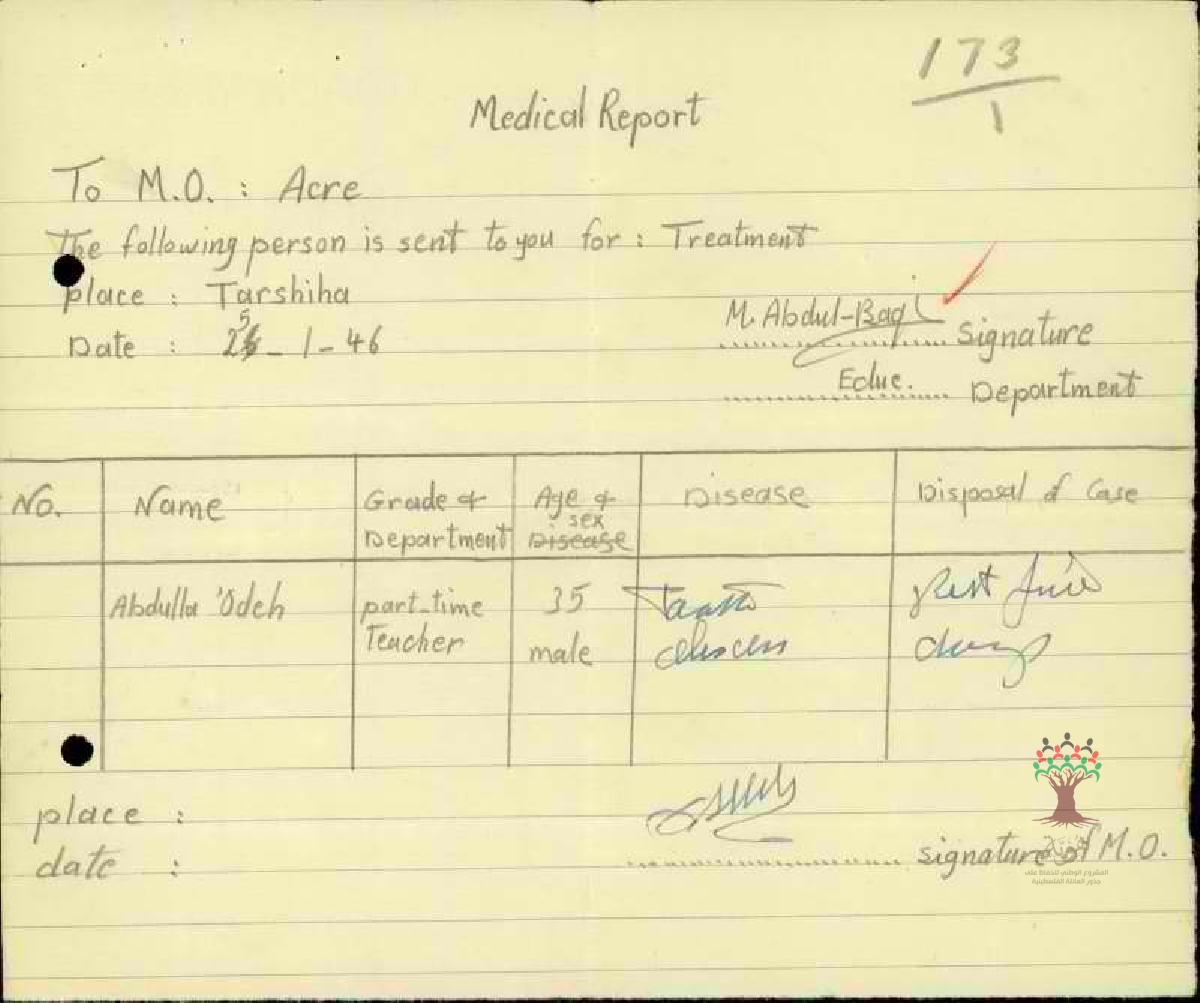 173
1
Medical Report
To M.O. : Acre
The following person is sent to you for : Treatment
place : Tarshiha
M. Abdul-Baqi Signature
Date : 25 - 1 - 46
Educ. Department
No. Name Grade & Department Age & sex Disease Disease Disposal of Case
Abdulla 'Odeh part-time Teacher 35 male abscess Rest five days
place :
date :
signature of M.O.
المشروع الوطني للحفاظ على
جذور العائلة الفلسطينية